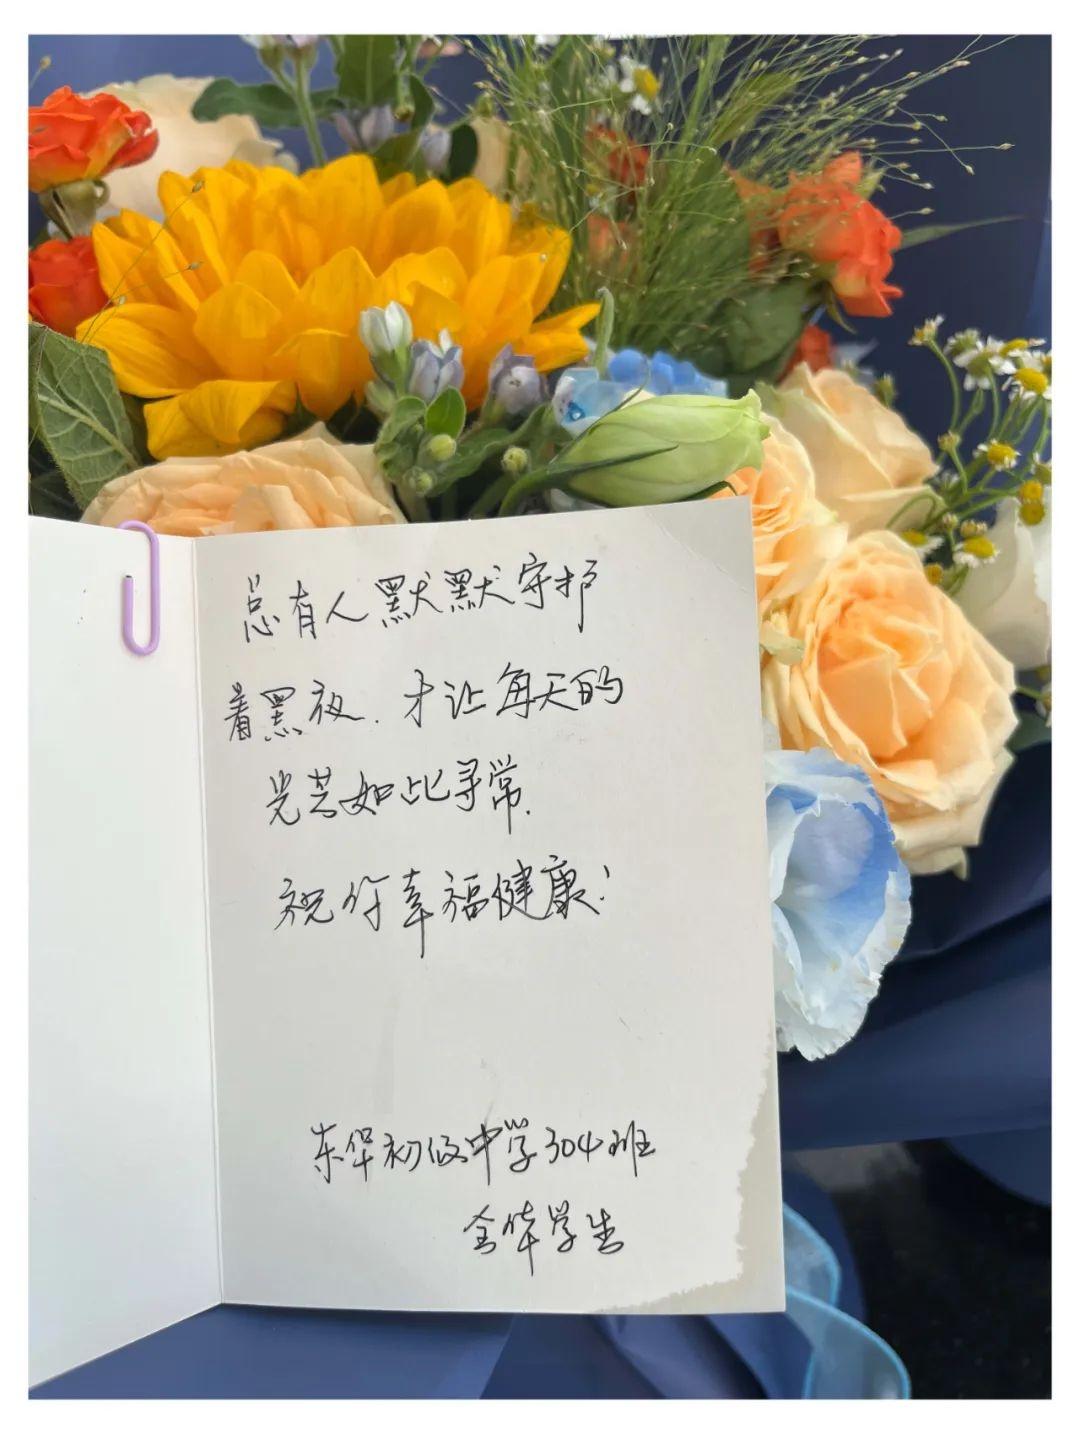 总有人默默守护
着黑夜，才让每天的
光芒如此寻常.
祝你幸福健康！
东华初级中学304班
全体学生